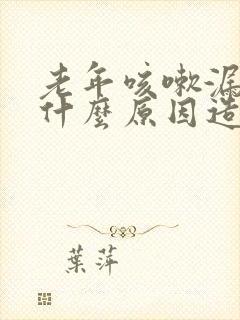 老年咳嗽漏
什麼原因造
葉萍